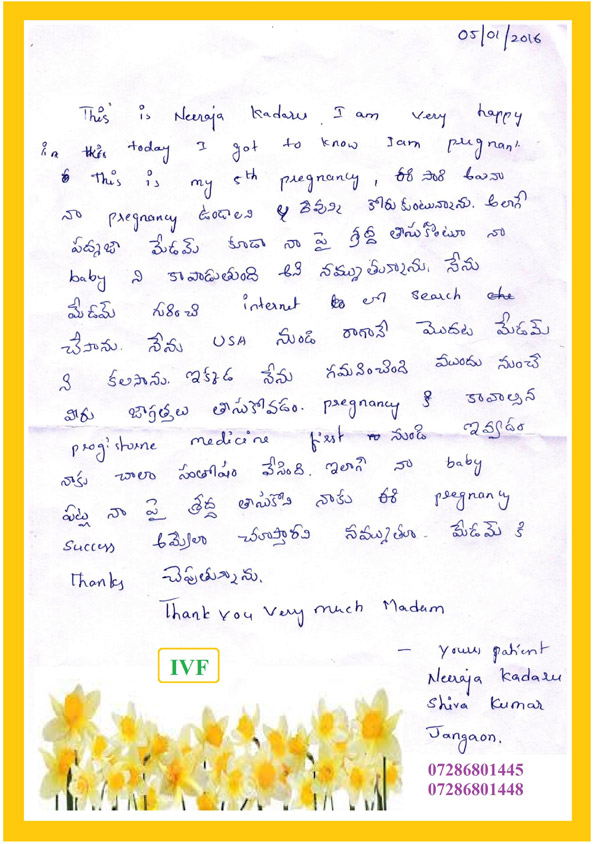 05/01/2016
This is Neeraja Kadaru. I am very happy
in this today I got to know Iam pregnant.
This is my 5th pregnancy, ఈ సారి అయినా
నా pregnancy ఉండాలని దేవుని కోరుకుంటున్నాను. అలాగే
పద్మజా మేడమ్ కూడా నా పై శ్రద్ధ తీసుకొంటూ నా
baby ని కాపాడుతుంది అని నమ్ముతున్నాను. నేను
మేడమ్ గురించి internet లో search
చేసాను. నేను USA నుండి రాగానే మొదట మేడమ్
ని కలసాను. ఇక్కడ నేను గమనించింది ముందు నుంచే
వీరు జాగ్రత్తలు తీసుకోవడం. pregnancy కి కావాల్సిన
progisturne medicine first నుండి ఇవ్వడం
నాకు చాలా సంతోషం వేసింది. ఇలాగే నా baby
పట్ల నా పై శ్రద్ధ తీసుకొని నాకు ఈ pregnancy
success అయ్యేలా చూస్తారని నమ్ముతూ. మేడమ్ కి
Thanks చెపుతున్నాను.
Thank you very much Madam
- Yours patient
Neeraja Kadaru
Shiva Kumar
Jangaon.
IVF
07286801445
07286801448